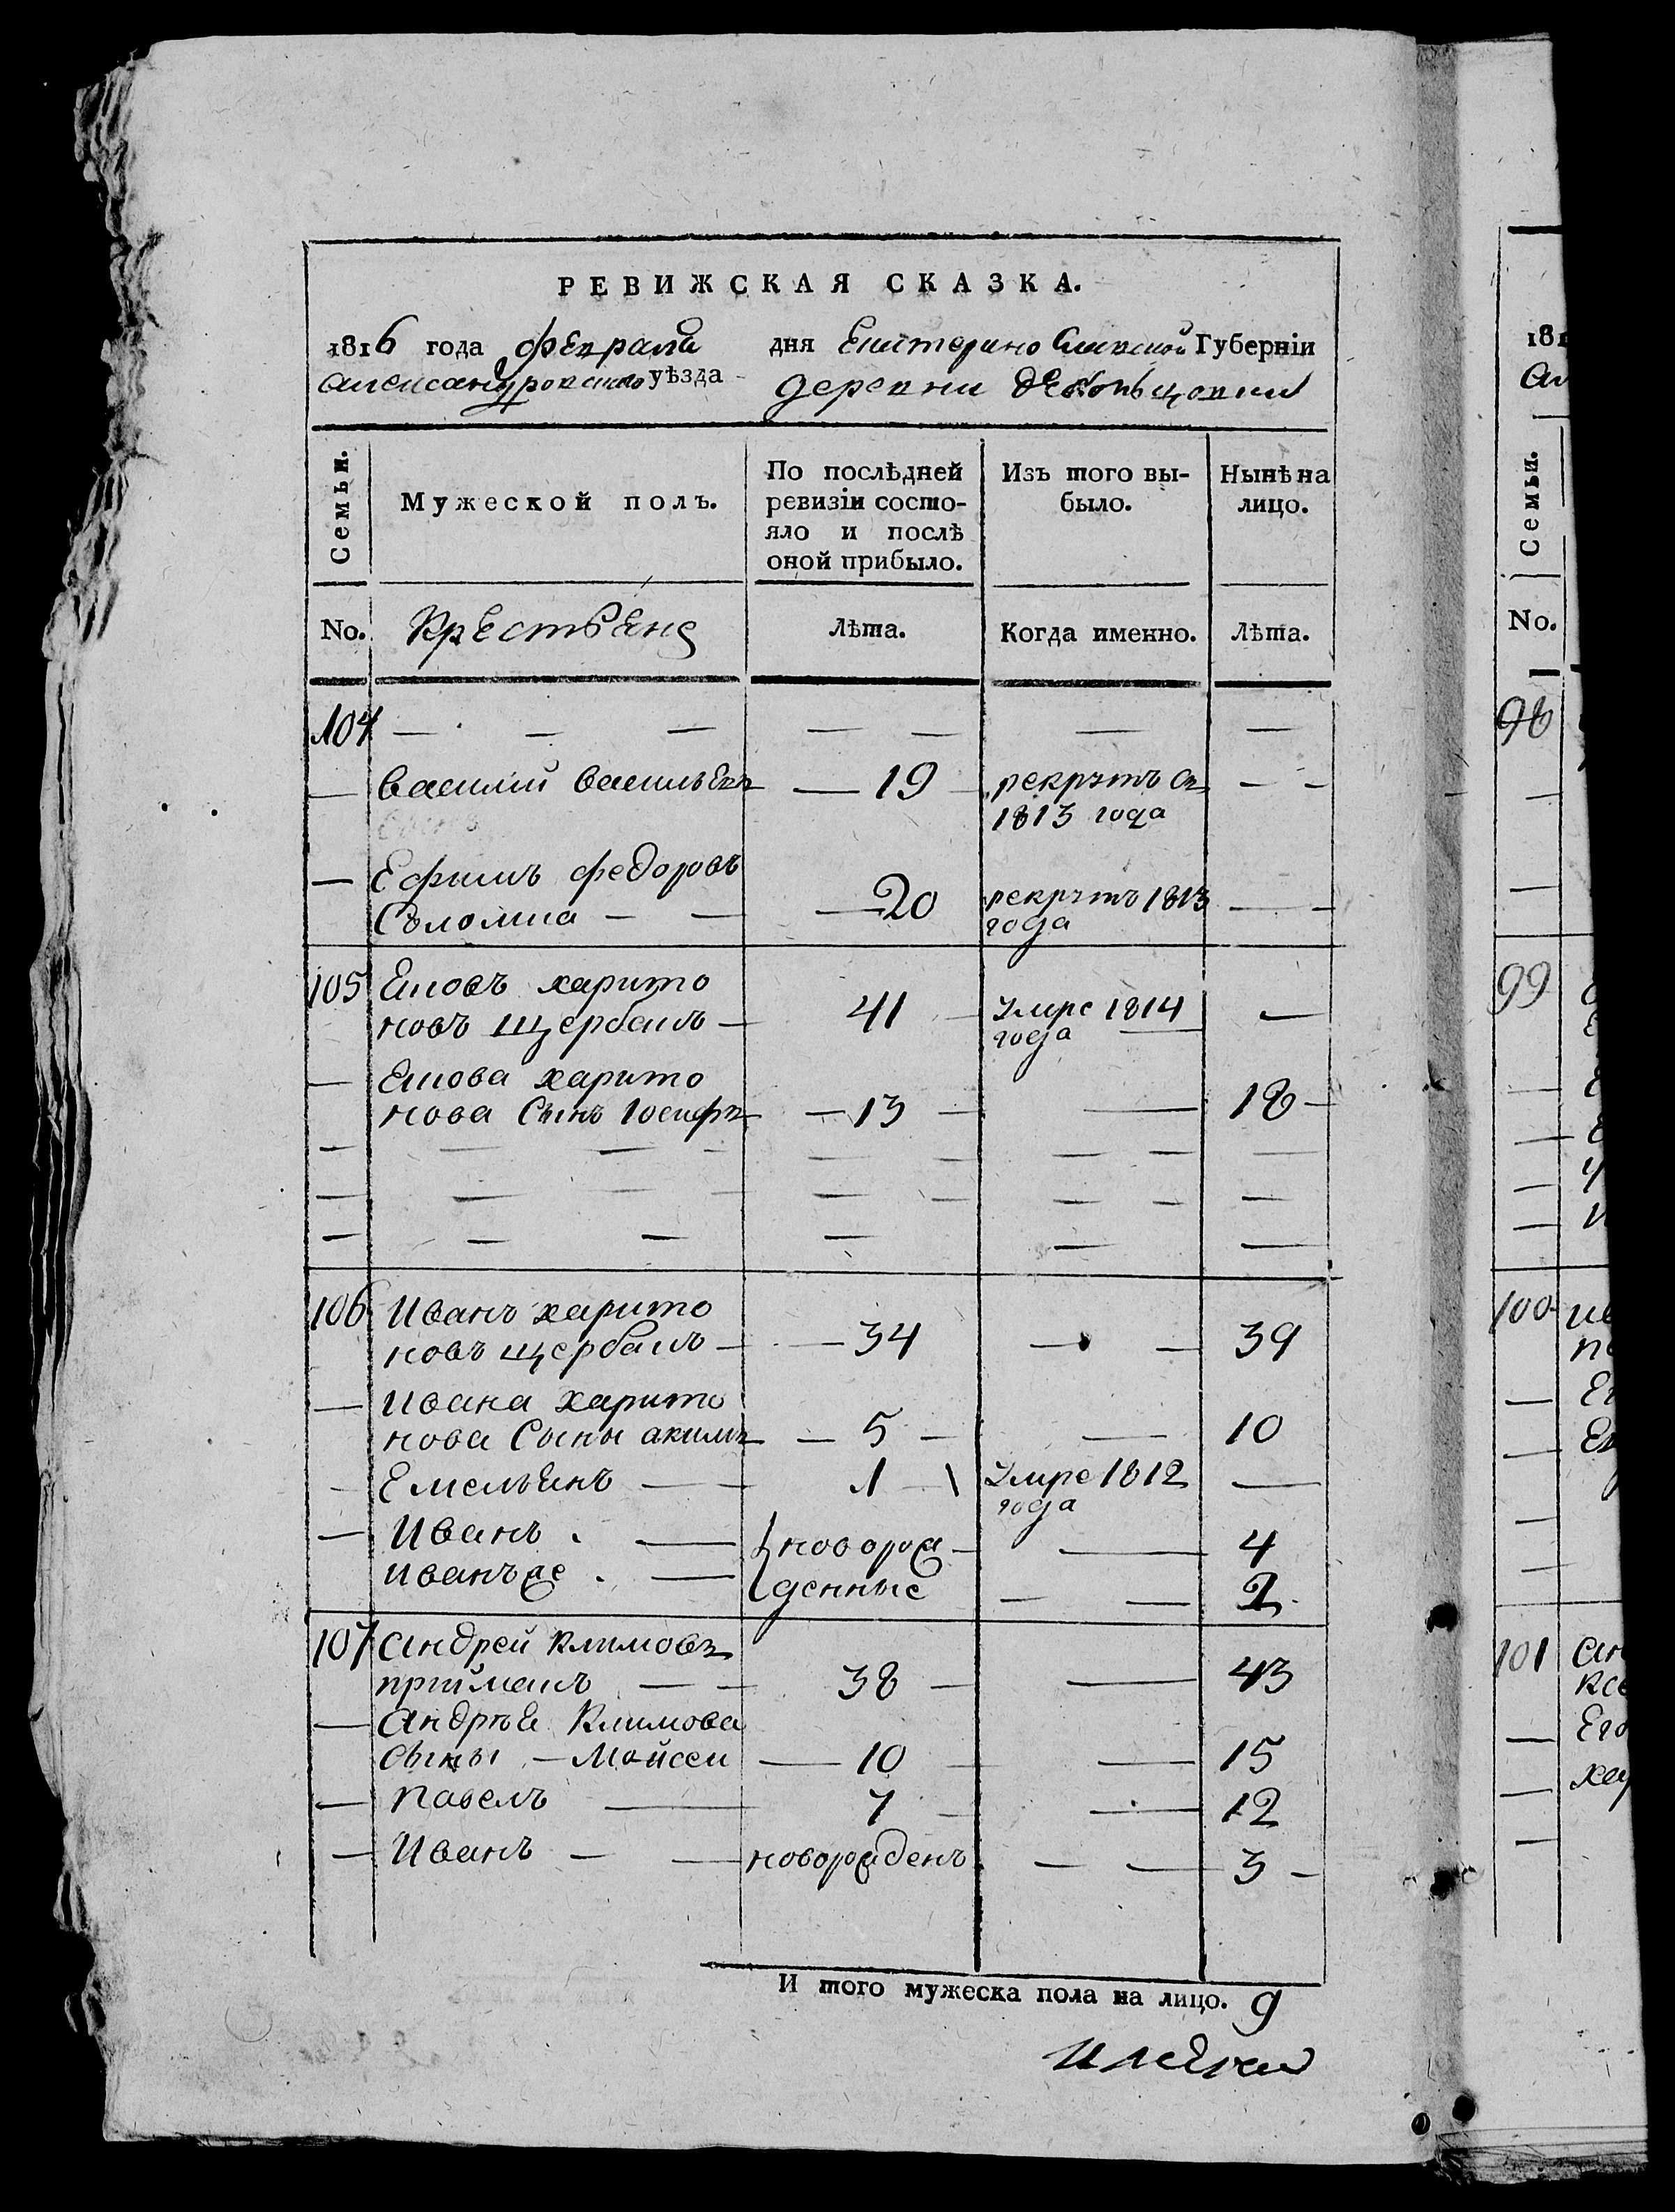 РЕВИЖСКАЯ СКАЗКА.
1816 года февраля дня Екатерино Славской Губернїи
александровскаго уѣзда деревни
Семьи.
Мужеской полъ.
По послѣдней ревизїи состояло и послѣ оной прибыло.
Изъ того выбыло.
Нынѣ на лицо.
No. Крестьяне Лѣта. Когда именно. Лѣта.
104 — — — — — — —
— василий васильевъ — 19 — рекрутъ съ — —
1813 года
— Ефимъ федоровъ
Соломка — — — 20 рекрутъ 1813 — —
года
105 Яковъ харито
новъ щербакъ — 41 — умре 1814 —
года —
— Якова харито
нова Сынъ Iосифъ — — 13 — — 18 —
— — — — — — — — —
— — — — — — — — —
— — — — — —
106 Иванъ харито
новъ щербакъ — — 34 — — 39
— Ивана харито
нова Сыны акимъ — — 5 — — 10
— Емельянъ — — 1 — умре 1812 —
года
— Иванъ — новорож — — 4
иванъже — денные — — 2
107 андрей климовъ
приймакъ — — 38 — — 43
— андрѣя климова
сыны — Мойсей — 10 — — 15
— павелъ — 7 — — 12
— Иванъ — — новорожденъ — — 3 —
И того мужеска пола на лицо. 9
181
Семьи.
No.
98
99
100
101